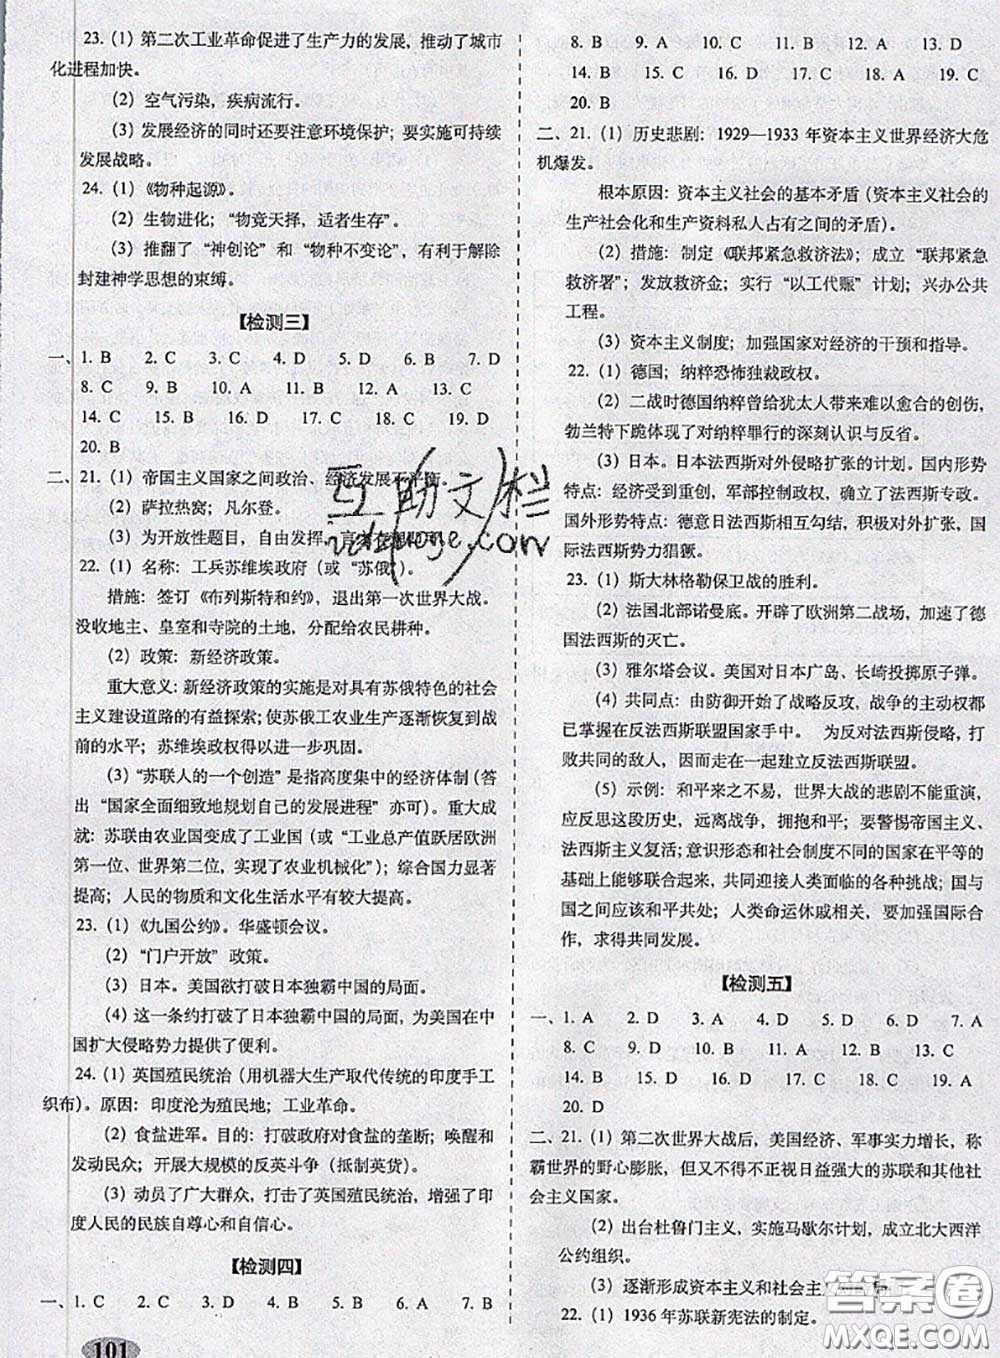 23. (1) 第二次工业革命促进了生产力的发展，推动了城市
化进程加快。
(2) 空气污染，疾病流行。
(3) 发展经济的同时还要注意环境保护；要实施可持续
发展战略。
24. (1)《物种起源》。
(2) 生物进化；“物竞天择，适者生存”。
(3) 推翻了“神创论”和“物种不变论”，有利于解除
封建神学思想的束缚。
【检测三】
一、1. B 2. C 3. C 4. D 5. D 6. B 7. D
8. C 9. B 10. A 11. B 12. A 13. C
14. C 15. B 16. D 17. C 18. C 19. D
20. B
二、21. (1) 帝国主义国家之间政治、经济发展不平衡。
(2) 萨拉热窝；凡尔登。
(3) 为开放性题目，自由发挥，言之有理即可。
22. (1) 名称：工兵苏维埃政府（或“苏俄”）。
措施：签订《布列斯特和约》，退出第一次世界大战。
没收地主、皇室和寺院的土地，分配给农民耕种。
(2) 政策：新经济政策。
重大意义：新经济政策的实施是对具有苏俄特色的社会
主义建设道路的有益探索；使苏俄工农业生产逐渐恢复到战
前的水平；苏维埃政权得以进一步巩固。
(3)“苏联人的一个创造”是指高度集中的经济体制（答
出“国家全面细致地规划自己的发展进程”亦可）。重大成
就：苏联由农业国变成了工业国（或“工业总产值跃居欧洲
第一位、世界第二位，实现了农业机械化”）；综合国力显著
提高；人民的物质和文化生活水平有较大提高。
23. (1)《九国公约》。华盛顿会议。
(2)“门户开放”政策。
(3) 日本。美国欲打破日本独霸中国的局面。
(4) 这一条约打破了日本独霸中国的局面，为美国在中
国扩大侵略势力提供了便利。
24. (1) 英国殖民统治（用机器大生产取代传统的印度手工
织布）。原因：印度沦为殖民地；工业革命。
(2) 食盐进军。目的：打破政府对食盐的垄断；唤醒和
发动民众；开展大规模的反英斗争（抵制英货）。
(3) 动员了广大群众，打击了英国殖民统治，增强了印
度人民的民族自尊心和自信心。
【检测四】
一、1. C 2. C 3. C 4. C 5. A 6. B 7. B
101
8. B 9. A 10. C 11. B 12. A 13. D
14. B 15. C 16. D 17. C 18. A 19. C
20. B
二、21. (1) 历史悲剧：1929—1933 年资本主义世界经济大危
机爆发。
根本原因：资本主义社会的基本矛盾（资本主义社会的
生产社会化和生产资料私人占有之间的矛盾）。
(2) 措施：制定《联邦紧急救济法》；成立“联邦紧急
救济署”；发放救济金；实行“以工代赈”计划；兴办公共
工程。
(3) 资本主义制度；加强国家对经济的干预和指导。
22. (1) 德国；纳粹恐怖独裁政权。
(2) 二战时德国纳粹曾给犹太人带来难以愈合的创伤，
勃兰特下跪体现了对纳粹罪行的深刻认识与反省。
(3) 日本。日本法西斯对外侵略扩张的计划。国内形势
特点：经济受到重创，军部控制政权，确立了法西斯专政。
国外形势特点：德意日法西斯相互勾结，积极对外扩张，国
际法西斯势力猖獗。
23. (1) 斯大林格勒保卫战的胜利。
(2) 法国北部诺曼底。开辟了欧洲第二战场，加速了德
国法西斯的灭亡。
(3) 雅尔塔会议。美国对日本广岛、长崎投掷原子弹。
(4) 共同点：由防御开始了战略反攻，战争的主动权都
已掌握在反法西斯联盟国家手中。 为反对法西斯侵略，打
败共同的敌人，因而走在一起建立反法西斯联盟。
(5) 示例：和平来之不易，世界大战的悲剧不能重演，
应反思这段历史，远离战争，拥抱和平；要警惕帝国主义、
法西斯主义复活；意识形态和社会制度不同的国家在平等的
基础上能够联合起来，共同迎接人类面临的各种挑战；国与
国之间应该和平共处；人类命运休戚相关，要加强国际合
作，求得共同发展。
【检测五】
一、1. A 2. D 3. A 4. D 5. D 6. D 7. A
8. C 9. D 10. C 11. D 12. A 13. B
14. B 15. B 16. D 17. C 18. A 19. D
20. D
二、21. (1) 第二次世界大战后，美国经济、军事实力增长，称
霸世界的野心膨胀，但又不得不正视日益强大的苏联和其他
社会主义国家。
(2) 出台杜鲁门主义，实施马歇尔计划，成立北大西洋
公约组织。
(3) 逐渐形成资本主义和社会主义
22. (1) 1936 年苏联新宪法的制定。
互助文栏
答案圈
MXQE.COM